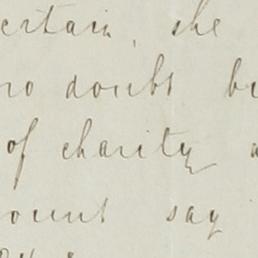 ertain, she
no doubt b
of charity
ount say